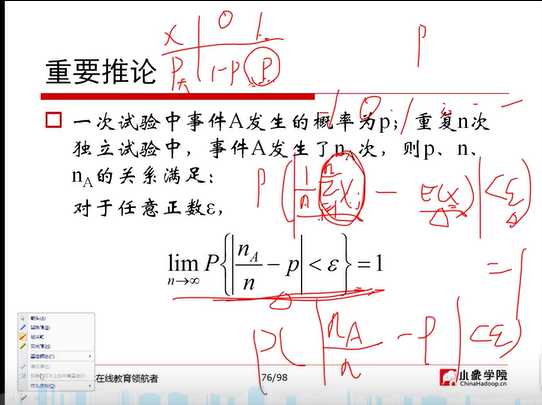 X 0 1
P 1-p p
P
重要推论
一次试验中事件A发生的概率为p；重复n次
独立试验中，事件A发生了nA次，则p、n、
nA的关系满足：
对于任意正数ε，
lim P{|nA/n - p| < ε} = 1
n→∞
P(|nA/n - P| < ε)
在线教育领航者
76/98
小象学院
ChinaHadoop.cn